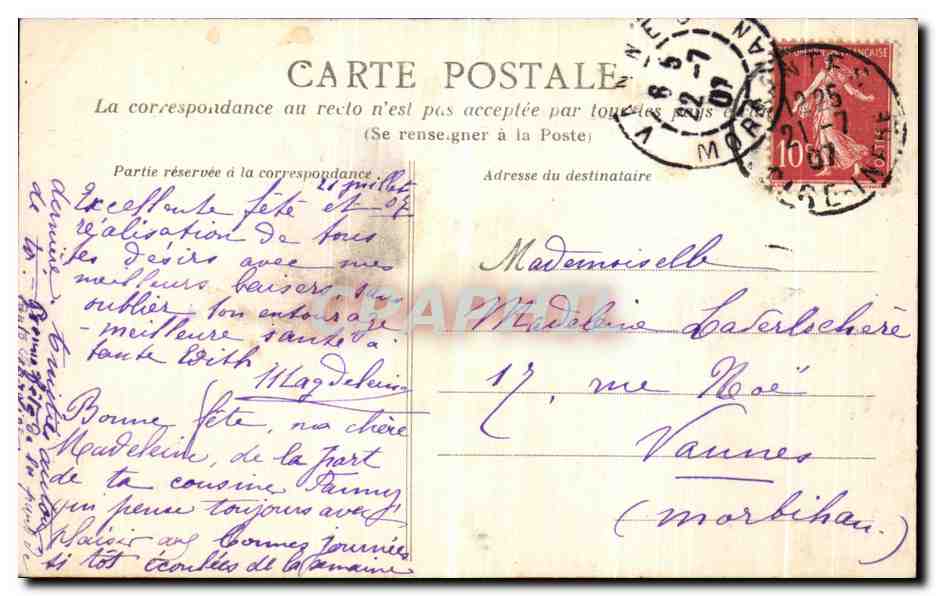 CARTE POSTALE
La correspondance au recto n'est pas acceptée par tous les pays
(Se renseigner à la Poste)
Partie réservée à la correspondance
Adresse du destinataire
VANNES
6 5
22-7
07
MORBIHAN
NANTES
2 25
21-7
07
LOIRE-INF
10
POSTES
21 juillet 07
Excellente fête et
réalisation de tous
tes désirs avec mes
meilleurs baisers sans
oublier ton entourage
- meilleure santé à
tante Edith
Magdeleine
Bonne fête, ma chère
Madeleine, de la part
de ta cousine Fanny
qui pense toujours avec
plaisir aux bonnes journées
si tôt écoulées de la semaine
dernière
de toi
Bonne fête
Mademoiselle
Madeleine
17, rue Noé
Vannes
(Morbihan)
CPAPHIL